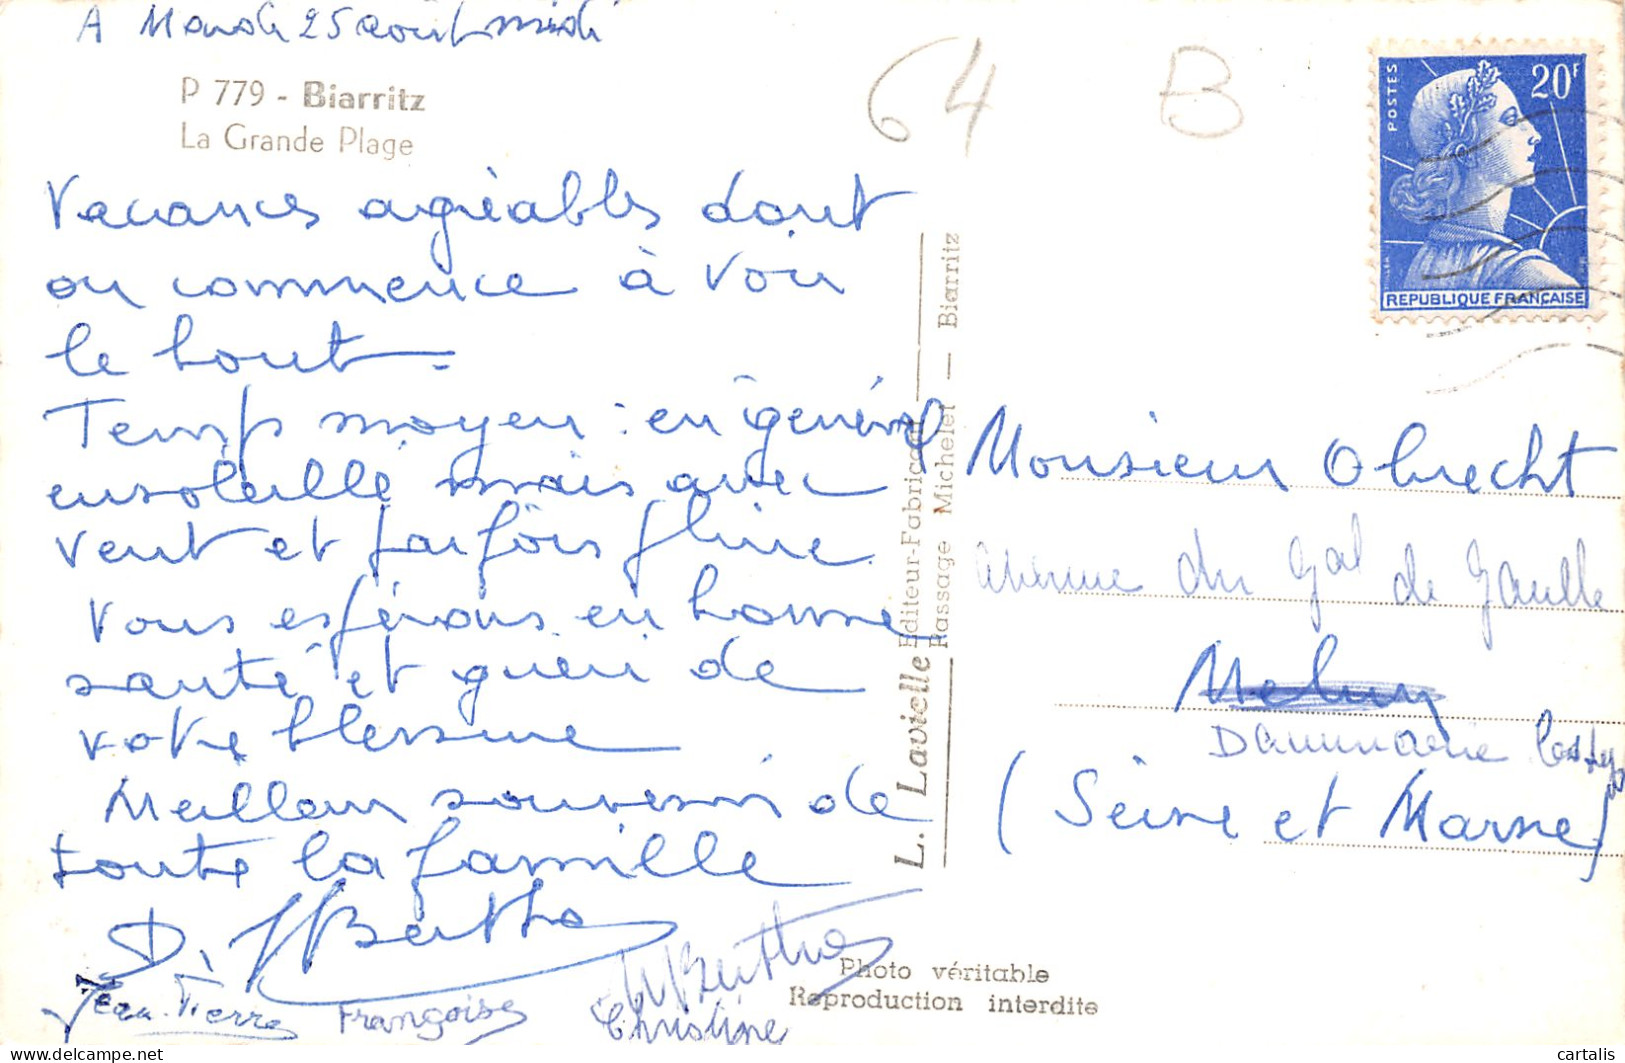 A Mardi 25 août midi
P 779 - Biarritz
La Grande Plage
64 B
POSTES 20F
REPUBLIQUE FRANÇAISE
Vacances agréables dont
on commence à voir
le bout.
Temps moyen : en général
ensoleillé mais avec
vent et parfois pluie.
Vous espérons en bonne
santé et guéri de
votre blessure
Meilleur souvenir de
toute la famille
D. Berthe
Berthe
Jean-Pierre Françoise Christine
L. Lavielle Editeur-Fabricant
Passage Michelet — Biarritz
Monsieur Obrecht
avenue du Gal de Gaulle
Melun
Dammarie les Lys
(Seine et Marne)
Photo véritable
Reproduction interdite
delcampe.net
cartalis